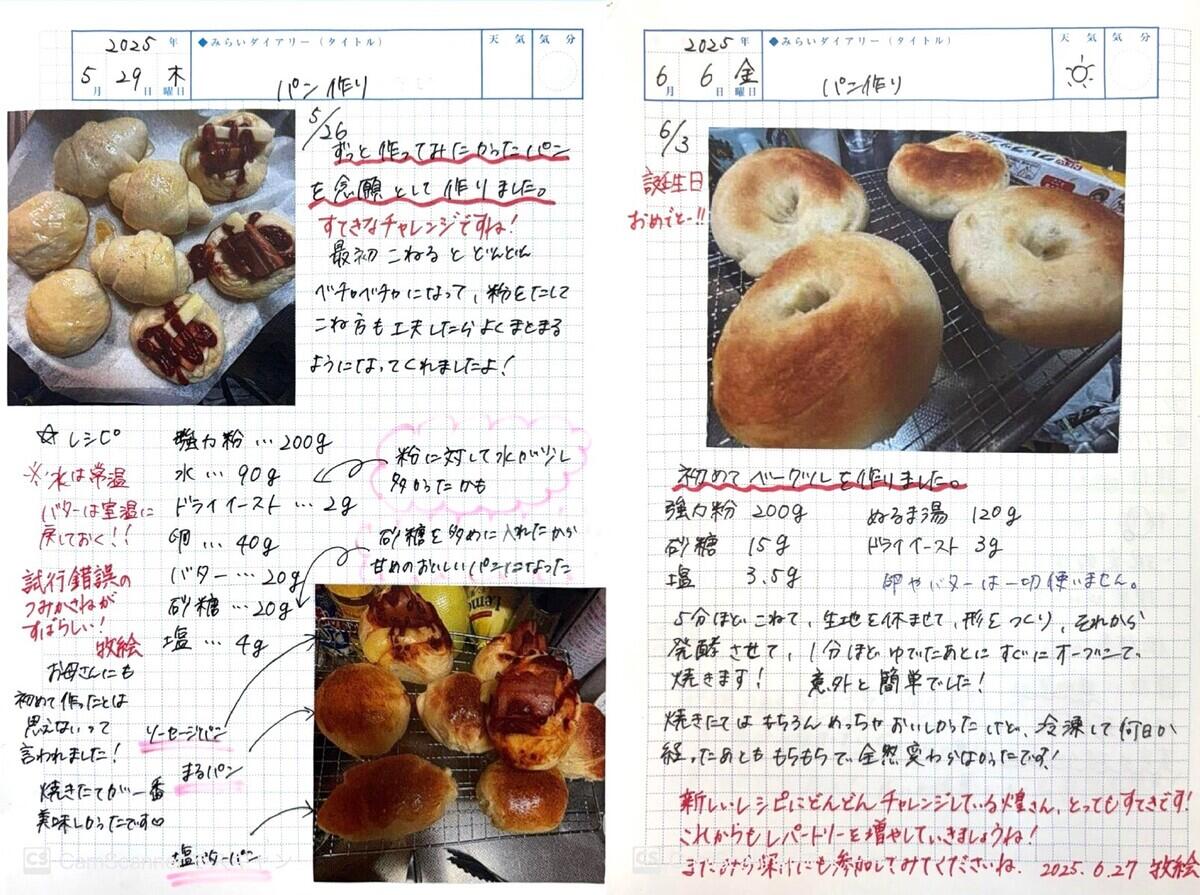 2025 年
5 月 29 日 木 曜日
◆みらいダイアリー（タイトル）
パン作り
天気
気分
5/26
ずっと作ってみたかったパン
を念願として作りました。
すてきなチャレンジですね！
最初こねるとどんどん
ベチャベチャになって、粉をたして
こね方も工夫したらよくまとまる
ようになってくれましたよ！
☆レシピ
強力粉…200g
水…90g
ドライイースト…2g
卵…40g
バター…20g
砂糖…20g
塩…4g
※水は常温
バターは室温に
戻しておく！！
粉に対して水が少し
多かったかも
砂糖を多めに入れたから
甘めのおいしいパンになった
試行錯誤の
つみかさねが
すばらしい！
牧絵
お母さんにも
初めて作ったとは
思えないって
言われました！
焼きたてが一番
美味しかったです♡
ソーセージパン
まるパン
塩バターパン
CS CamScanner
2025 年
6 月 6 日 金 曜日
◆みらいダイアリー（タイトル）
パン作り
天気
気分
6/3
誕生日
おめでとー!!
初めてベーグルを作りました。
強力粉 200g ぬるま湯 120g
砂糖 15g ドライイースト 3g
塩 3.5g 卵やバターは一切使いません。
5分ほどこねて、生地を休ませて、形をつくり、それから
発酵させて、1分ほどゆでたあとにすぐにオーブンで
焼きます！ 意外と簡単でした！
焼きたてはもちろんめっちゃおいしかったけど、冷凍して何日か
経ったあとももちもちで全然変わらなかったです！
新しいレシピにどんどんチャレンジしている煌さん、とってもすてきです！
これからもレパートリーを増やしていきましょうね！
またみらい深けにも参加してみてくださいね。2025.6.27 牧絵
CS